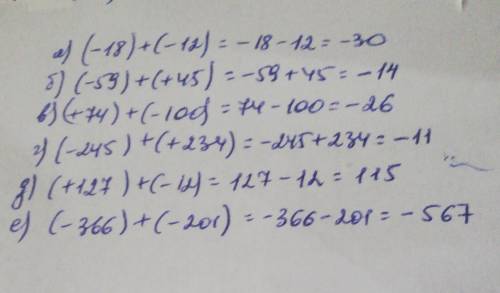 а) (-18)+(-12) = -18-12 = -30
б) (-59)+(+45) = -59+45 = -14
в) (+74)+(-100) = 74-100 = -26
г) (-245)+(+234) = -245+234 = -11
д) (+127)+(-12) = 127-12 = 115
е) (-366)+(-201) = -366-201 = -567